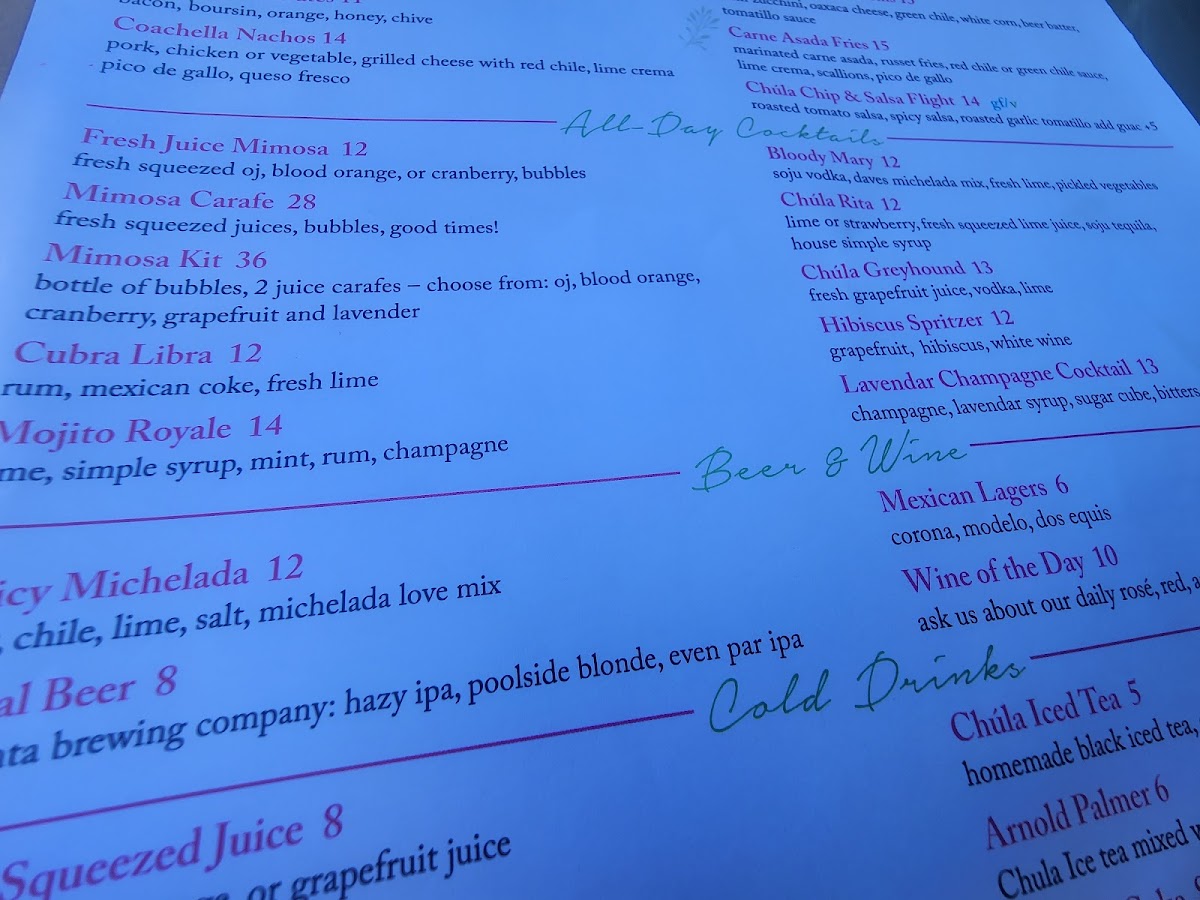 bacon, boursin, orange, honey, chive
Coachella Nachos 14
pork, chicken or vegetable, grilled cheese with red chile, lime crema
pico de gallo, queso fresco
zucchini, oaxaca cheese, green chile, white corn, beer batter,
tomatillo sauce
Carne Asada Fries 15
marinated carne asada, russet fries, red chile or green chile sauce,
lime crema, scallions, pico de gallo
Chúla Chip & Salsa Flight 14 gf/v
roasted tomato salsa, spicy salsa, roasted garlic tomatillo add guac +5
All-Day Cocktails
Fresh Juice Mimosa 12
fresh squeezed oj, blood orange, or cranberry, bubbles
Mimosa Carafe 28
fresh squeezed juices, bubbles, good times!
Mimosa Kit 36
bottle of bubbles, 2 juice carafes – choose from: oj, blood orange,
cranberry, grapefruit and lavender
Cubra Libra 12
rum, mexican coke, fresh lime
Mojito Royale 14
me, simple syrup, mint, rum, champagne
Bloody Mary 12
soju vodka, daves michelada mix, fresh lime, pickled vegetables
Chúla Rita 12
lime or strawberry, fresh squeezed lime juice, soju tequila,
house simple syrup
Chúla Greyhound 13
fresh grapefruit juice, vodka, lime
Hibiscus Spritzer 12
grapefruit, hibiscus, white wine
Lavendar Champagne Cocktail 13
champagne, lavendar syrup, sugar cube, bitters
Beer & Wine
icy Michelada 12
, chile, lime, salt, michelada love mix
al Beer 8
nta brewing company: hazy ipa, poolside blonde, even par ipa
Mexican Lagers 6
corona, modelo, dos equis
Wine of the Day 10
ask us about our daily rosé, red, a
Cold Drinks
Squeezed Juice 8
or grapefruit juice
Chúla Iced Tea 5
homemade black iced tea,
Arnold Palmer 6
Chula Ice tea mixed w